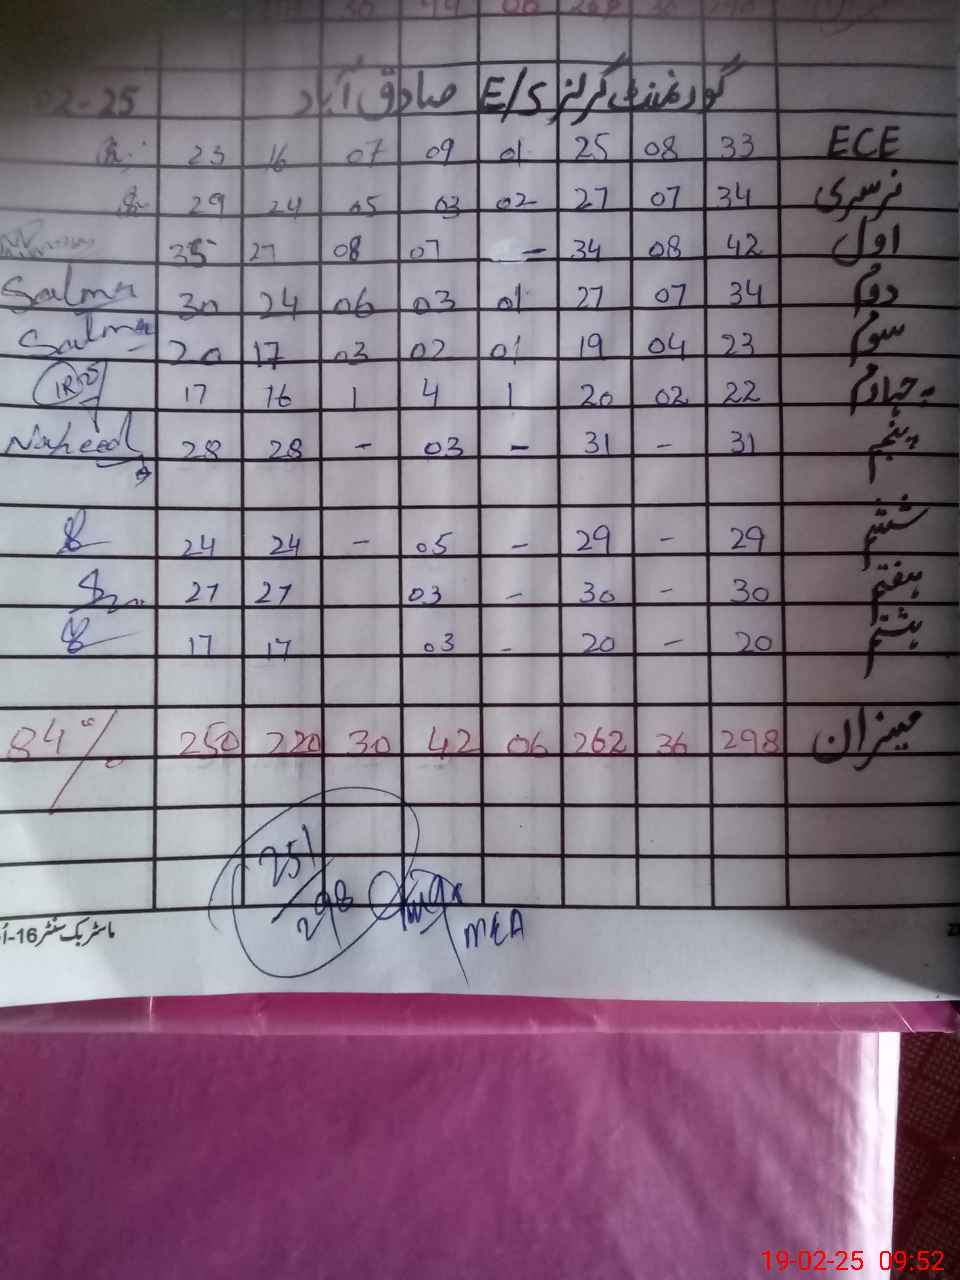 گورنمنٹ گرلز E/S صادق آباد 02-25
ECE 33 08 25 01 09 07 16 23
نرسری 34 07 27 02 03 05 24 29
اول 42 08 34 - 07 08 27 35
دوم 34 07 27 01 03 06 24 30 Salma
سوم 23 04 19 01 02 03 17 20 Salma
چہارم 22 02 20 1 4 1 16 17
پنجم 31 - 31 - 03 - 28 28 Naheed
ششم 29 - 29 - 05 - 24 24
ہفتم 30 - 30 - 03 27 27
ہشتم 20 - 20 - 03 17 17
میزان 298 36 262 06 42 30 220 250 84%
251/298
MEA
19-02-25 09:52